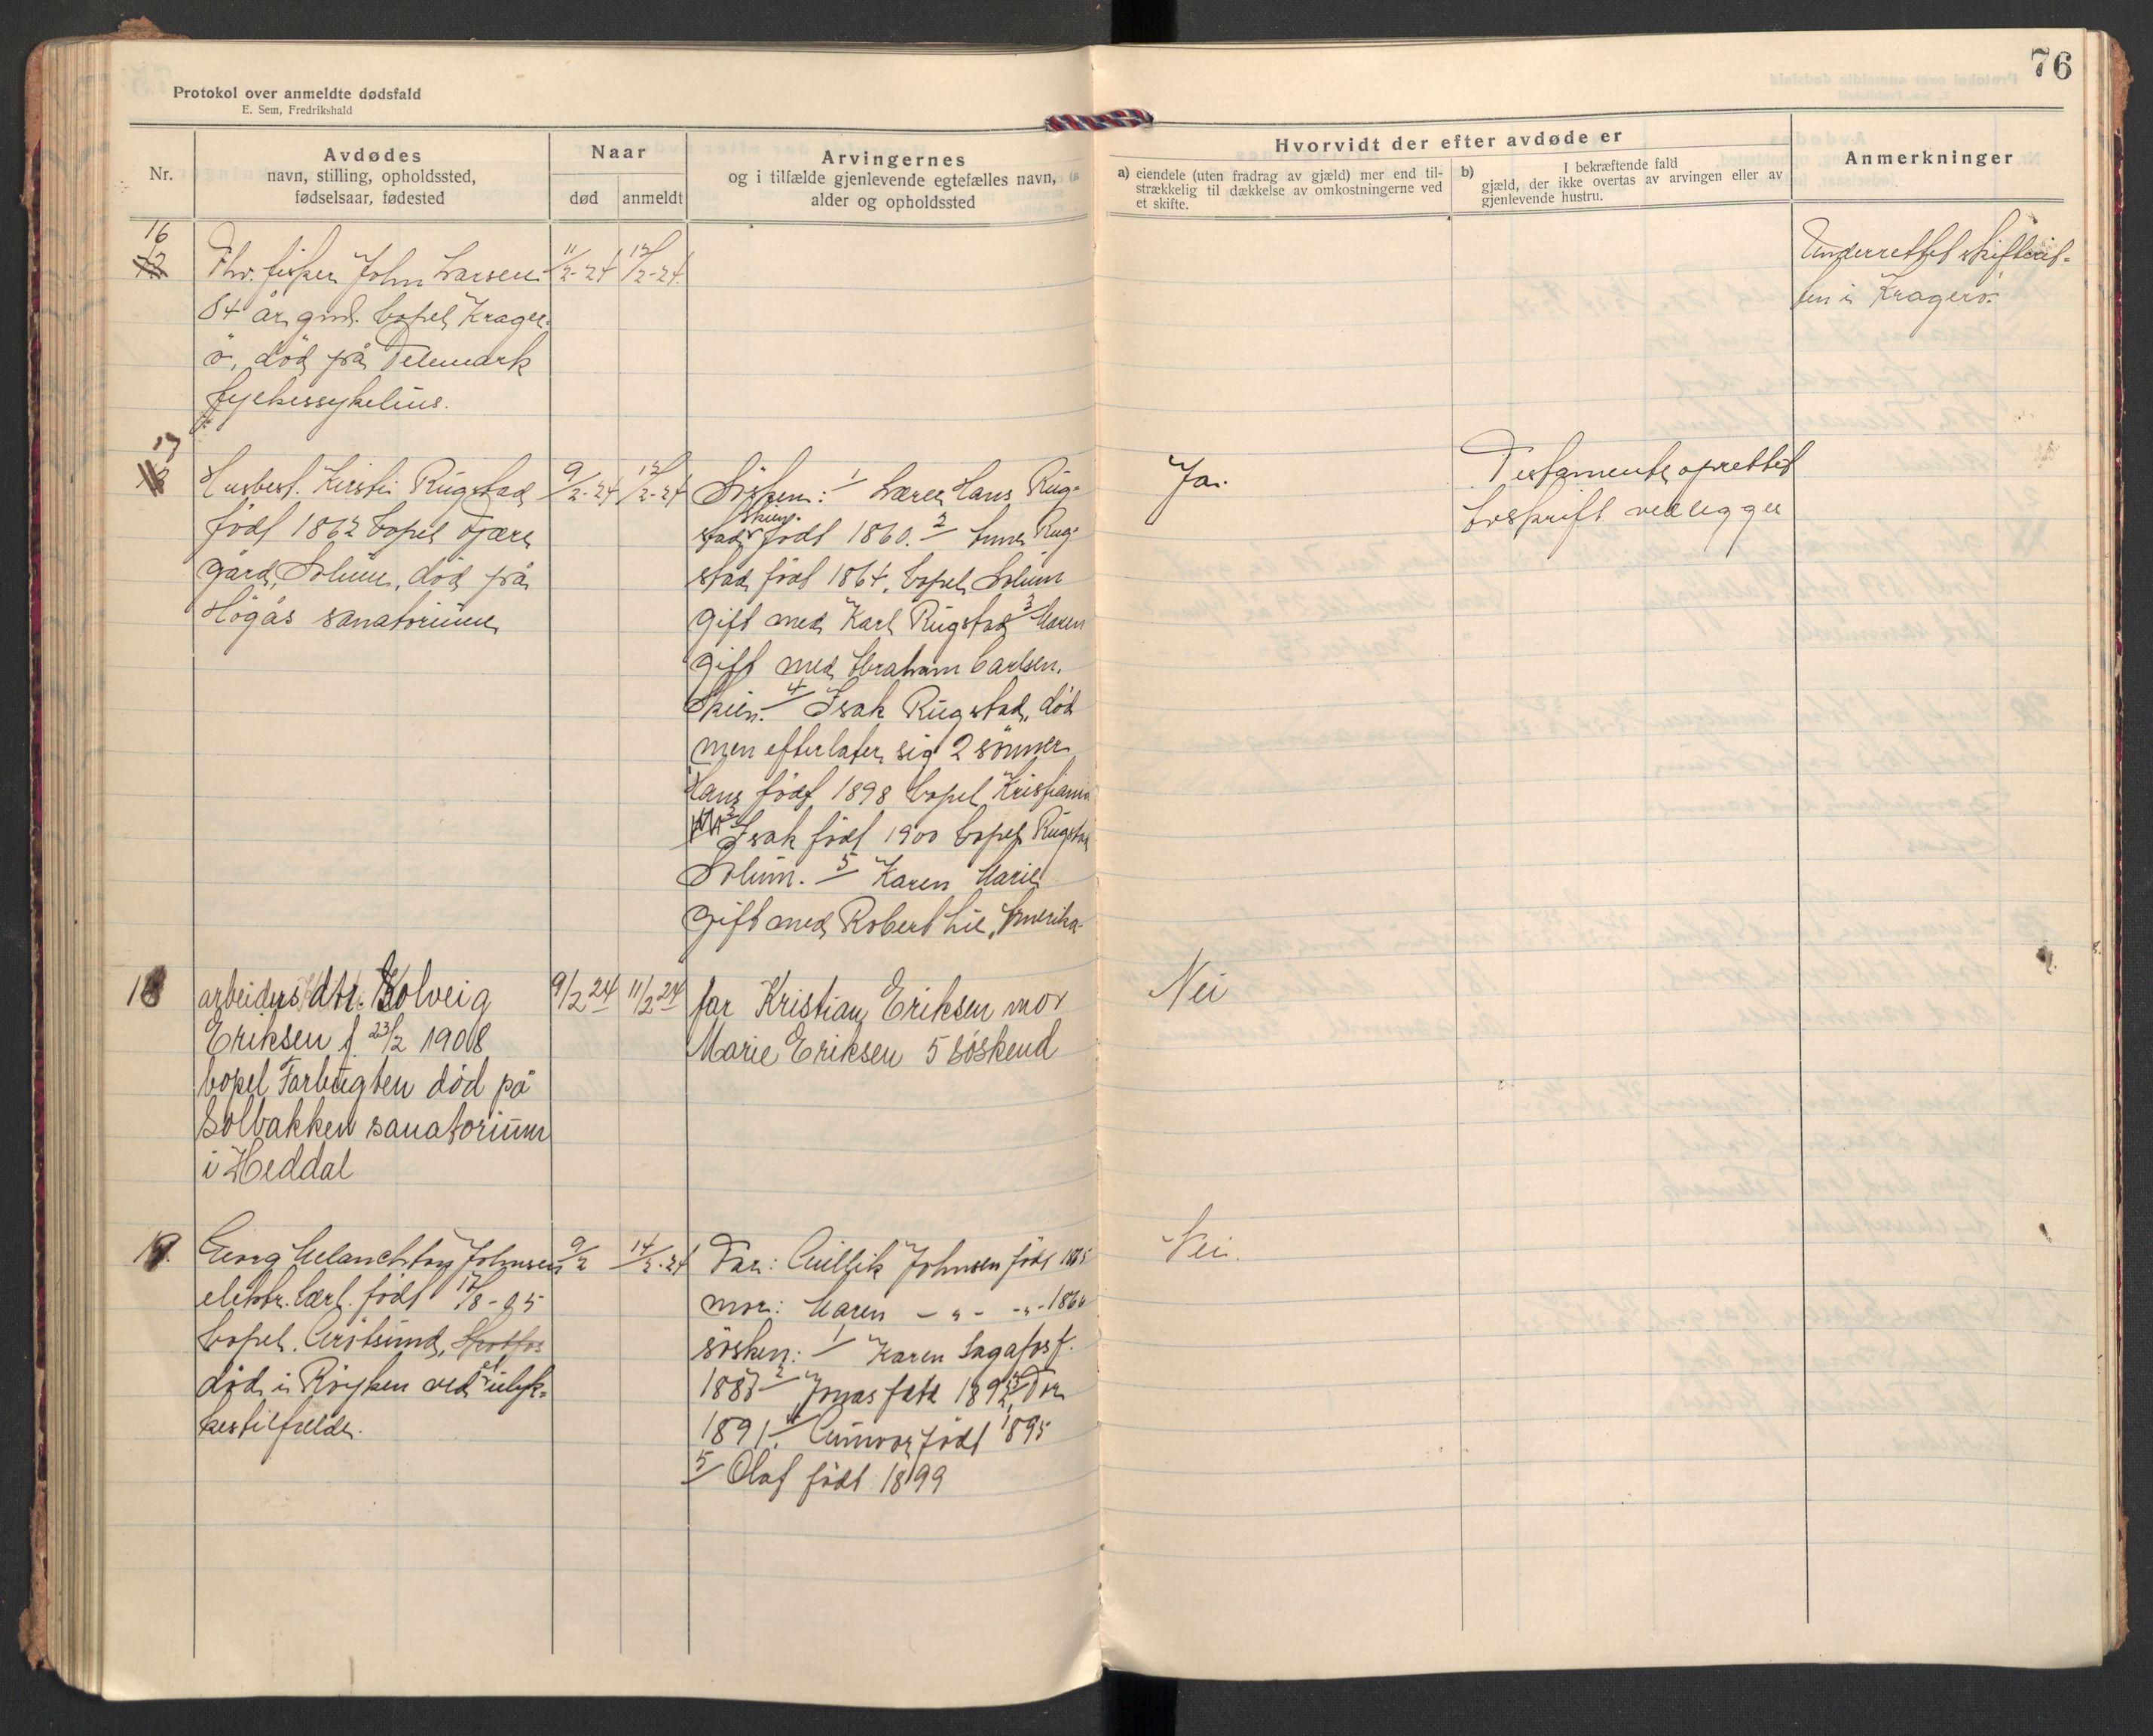 76
Protokol over anmeldte dødsfald
E. Sem, Fredrikshald
Nr.
Avdødes
navn, stilling, opholdssted,
fødselsaar, fødested
Naar
død
anmeldt
Arvingernes
og i tilfælde gjenlevende egtefælles navn,
alder og opholdssted
Hvorvidt der efter avdøde er
a) eiendele (uten fradrag av gjæld) mer end til-
strækkelig til dækkelse av omkostningerne ved
et skifte.
b) I bekræftende fald
gjæld, der ikke overtas av arvingen eller av
gjenlevende hustru.
Anmerkninger
16
12
Fhv. fisker John Larsen
84 år gml. bopel Krager-
ö, död på Telemark
fylkessykehus.
11/2-24
12/2-24.
Underrettet skifteret-
ten i Kragerö.
17
Husbest. Kirsti Rugstad
födt 1862 bopel
gård, Solum, död på
Högås sanatorium
9/2-24
12/2-24
Sösken: 1/ Lærer Hans Rug-
stad Skien födt 1860. 2/ Anne Rug-
stad födt 1864, bopel Solum
gift med Karl Rugstad 3/ Maren
gift med Abraham Carlsen,
Skien. 4/ Isak Rugstad, död
men efterlater sig 2 sönner
Hans födt 1898 bopel Kristiania
2/ Isak födt 1900 bopel Rugstad
Solum. 5/ Karen Marie
gift med Robert Lie, Amerika
Ja.
Testamente oprettet
avskrift vedlegges
18
arbeiders dtr. Solveig
Eriksen f. 23/2 1908
bopel Farbugten död på
Solbakken sanatorium
i Heddal
9/2 24
11/2 24
far Kristian Eriksen mor
Marie Eriksen 5 söskend
Nei
19.
Georg Melanchton Johnsen
elektr. lærl. födt 17/8-05
bopel. Grötsund, Skotfos
död i Röyken ved et ulyk-
kestilfælde.
9/2
14/2-24
Far: Gullik Johnsen födt 1865
mor: Maren - " - - " - 1866
sösken: 1/ Karen Lagafos f.
1887 2/ Jonas födt 1892 3/ Tor
1891, 4/ Gunvor födt 1895
5/ Olaf födt 1899
Nei.